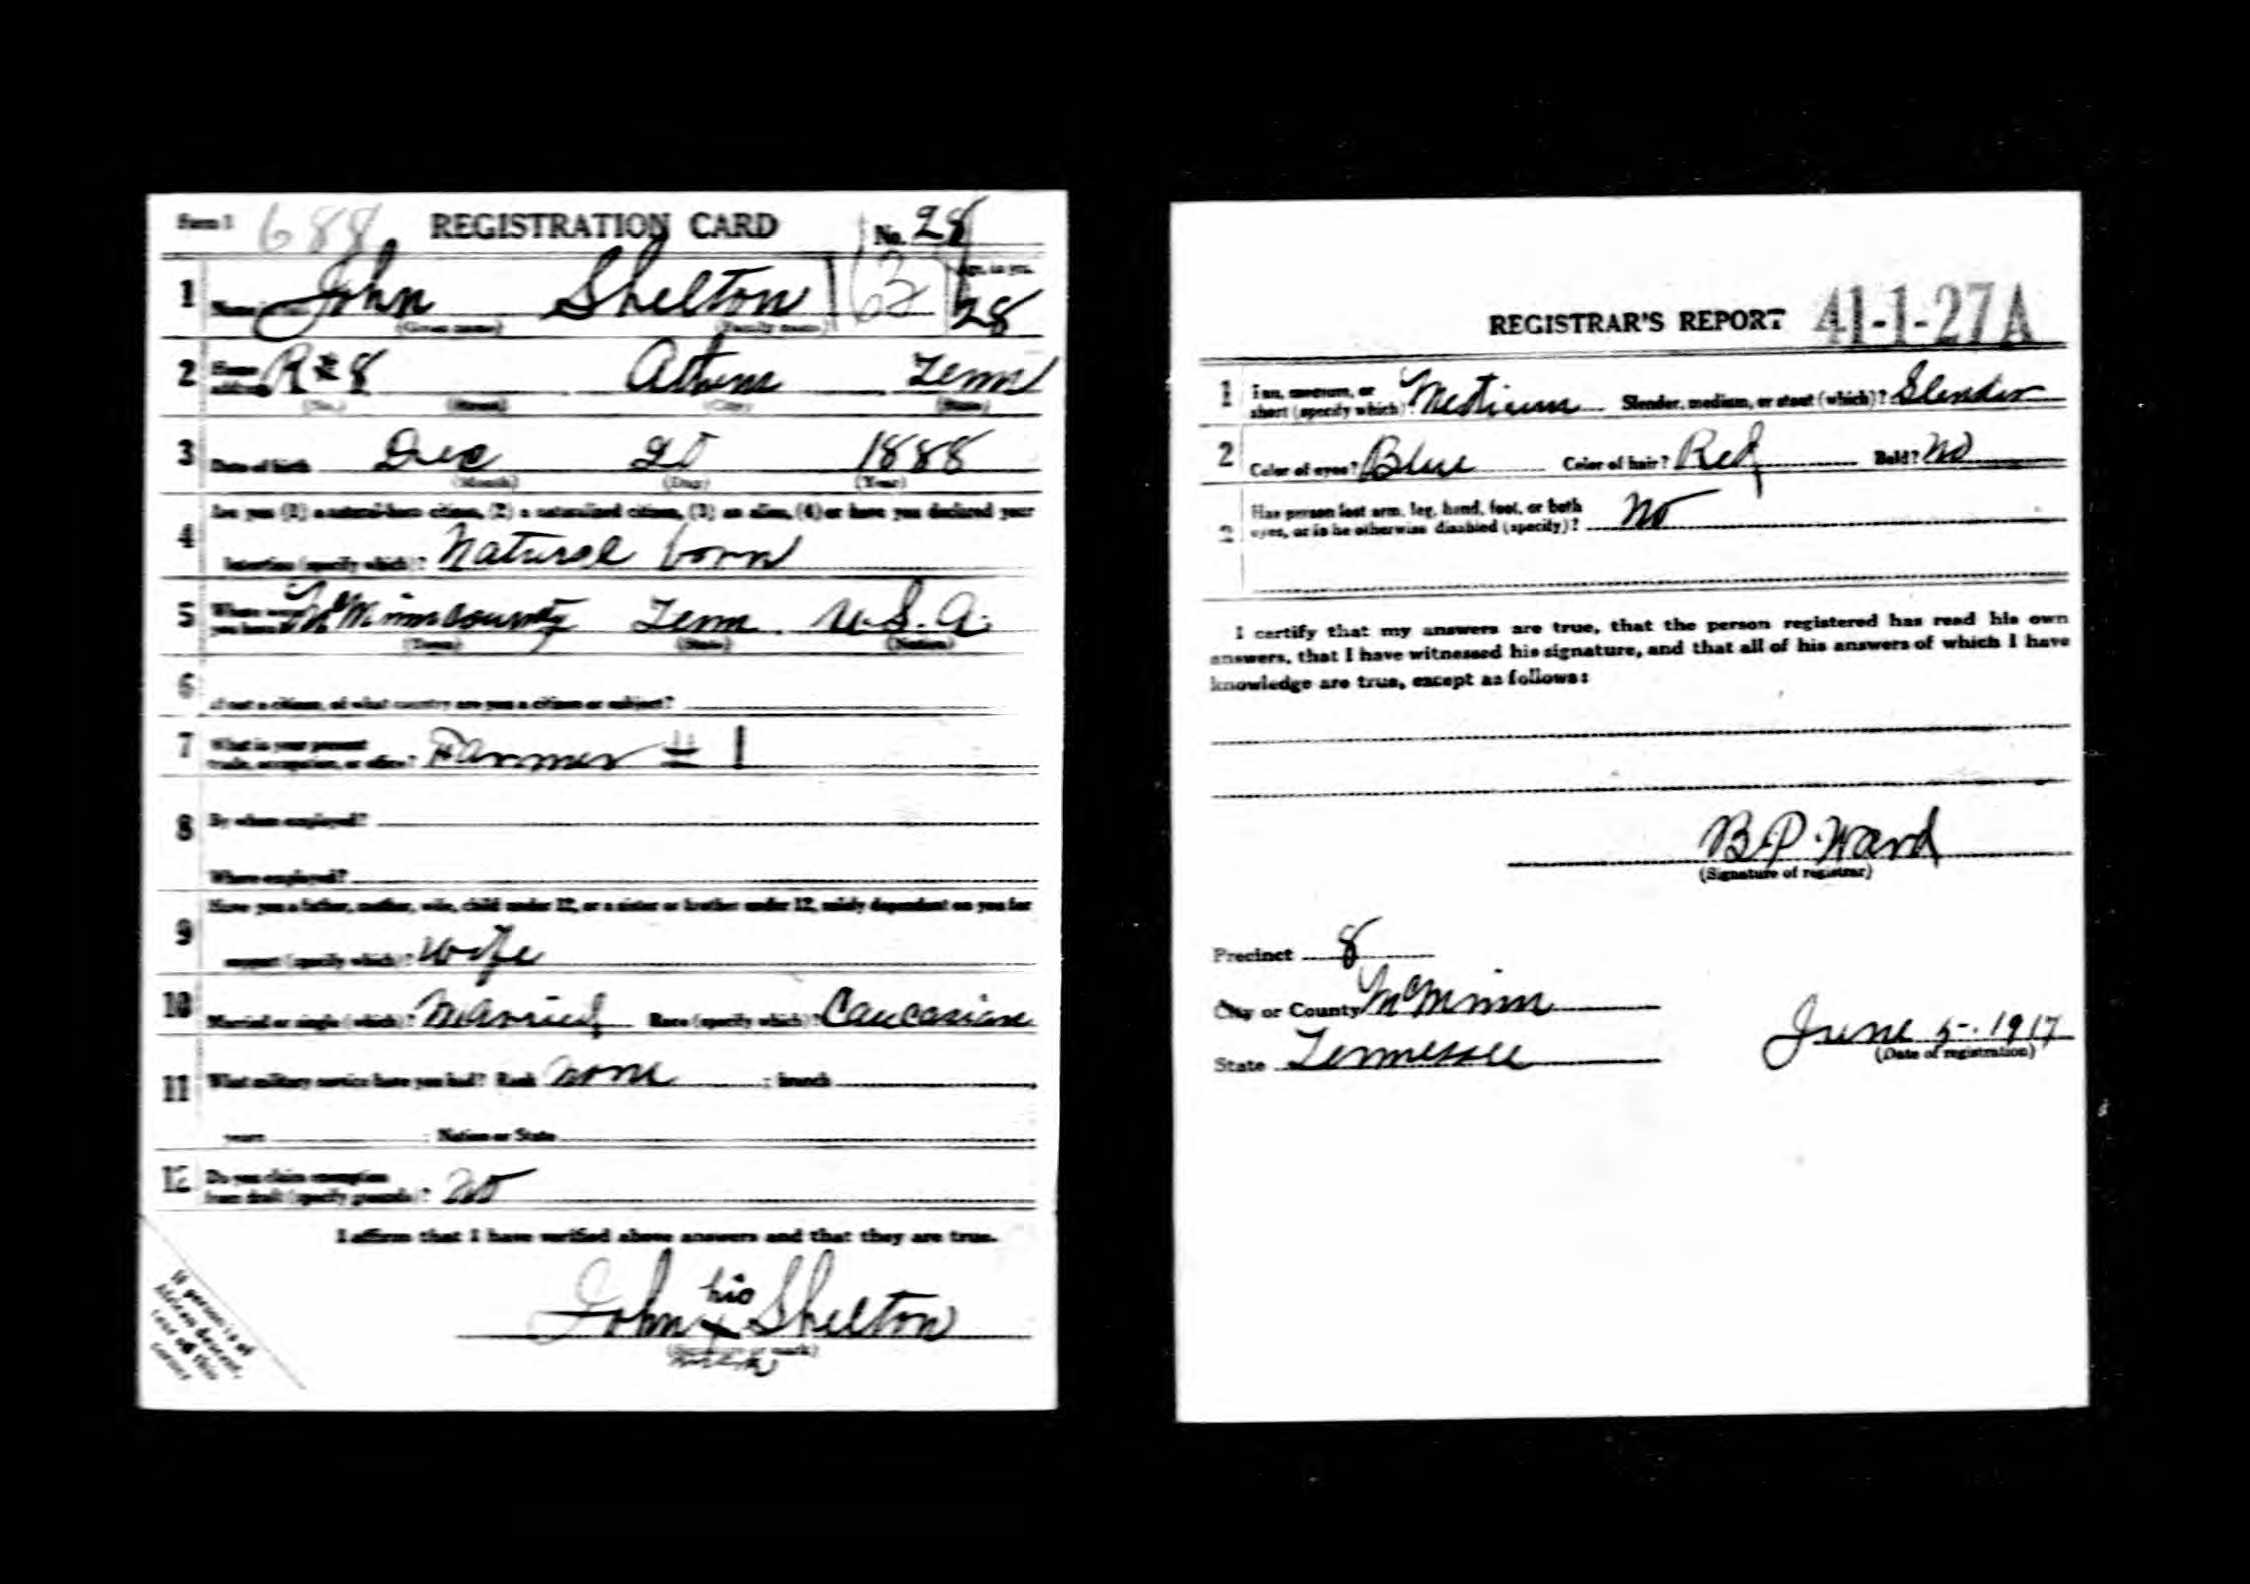 Form 1 688 REGISTRATION CARD No. 28
1 Name John Shelton 62 Age, in yrs. 28
(Given name) (Family name)
2 Home address R#8 Athens Tenn
(No.) (Street) (City) (State)
3 Date of birth Dec 20 1888
(Month) (Day) (Year)
4 Are you (1) a natural-born citizen, (2) a naturalized citizen, (3) an alien, (4) or have you declared your
intention (specify which)? Natural born
5 Where were you born? McMinn county Tenn U.S.A.
(Town) (State) (Nation)
6 If not a citizen, of what country are you a citizen or subject?
7 What is your present trade, occupation, or office? Farmer # 1
8 By whom employed?
Where employed?
9 Have you a father, mother, wife, child under 12, or a sister or brother under 12, solely dependent on you for
support (specify which)? Wife
10 Married or single (which)? Married Race (specify which)? Caucasian
11 What military service have you had? Rank None ; branch
years ; Nation or State
12 Do you claim exemption from draft (specify grounds)? No
I affirm that I have verified above answers and that they are true.
John his x Shelton
(Signature or mark)
mark
If person is of
African descent,
tear off this
corner
REGISTRAR'S REPORT 41-1-27A
1 Tall, medium, or short (specify which)? Medium Slender, medium, or stout (which)? Slender
2 Color of eyes? Blue Color of hair? Red Bald? No
3 Has person lost arm, leg, hand, foot, or both
eyes, or is he otherwise disabled (specify)? No
I certify that my answers are true, that the person registered has read his own
answers, that I have witnessed his signature, and that all of his answers of which I have
knowledge are true, except as follows:
B.P. Ward
(Signature of registrar)
Precinct 8
City or County McMinn
State Tennessee
June 5-.1917
(Date of registration)